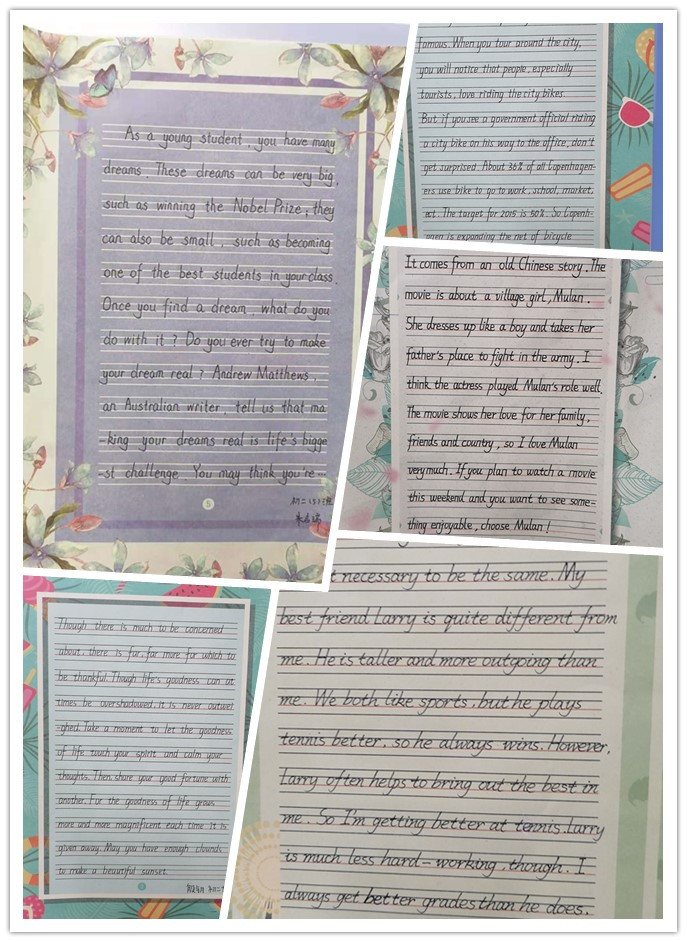 As a young student, you have many
dreams. These dreams can be very big,
such as winning the Nobel Prize; they
can also be small, such as becoming
one of the best students in your class.
Once you find a dream, what do you
do with it? Do you ever try to make
your dream real? Andrew Matthews,
an Australian writer, tell us that ma
-king your dreams real is life's bigge
-st challenge. You may think you're ...
5
famous. When you tour around the city,
you will notice that people, especially
tourists, love riding the city bikes
But if you see a government official riding
a city bike on his way to the office, don't
get surprised. About 36% of all Copenhagen-
ers use bike to go to work, school, market,
ect. The target for 2015 is 50%. So Copenh-
agen is expanding the net of bicycle
It comes from an old Chinese story. The
movie is about a village girl, Mulan.
She dresses up like a boy and takes her
father's place to fight in the army. I
think the actress played Mulan's role well.
The movie shows her love for her family,
friends and country, so I love Mulan
very much. If you plan to watch a movie
this weekend and you want to see some-
thing enjoyable, choose Mulan!
Though there is much to be concerned
about, there is far, far more for which to
be thankful. Though life's goodness can at
times be overshadowed, it is never outwei
-ghed. Take a moment to let the goodness
of life touch your spirit and calm your
thoughts. Then, share your good fortune with
another. For the goodness of life grows
more and more magnificent each time it is
given away. May you have enough clounds
to make a beautiful sunset.
t necessary to be the same. My
best friend Larry is quite different from
me. He is taller and more outgoing than
me. We both like sports, but he plays
tennis better, so he always wins. However,
Larry often helps to bring out the best in
me. So I'm getting better at tennis. Larry
is much less hard-working, though. I
always get better grades than he does.